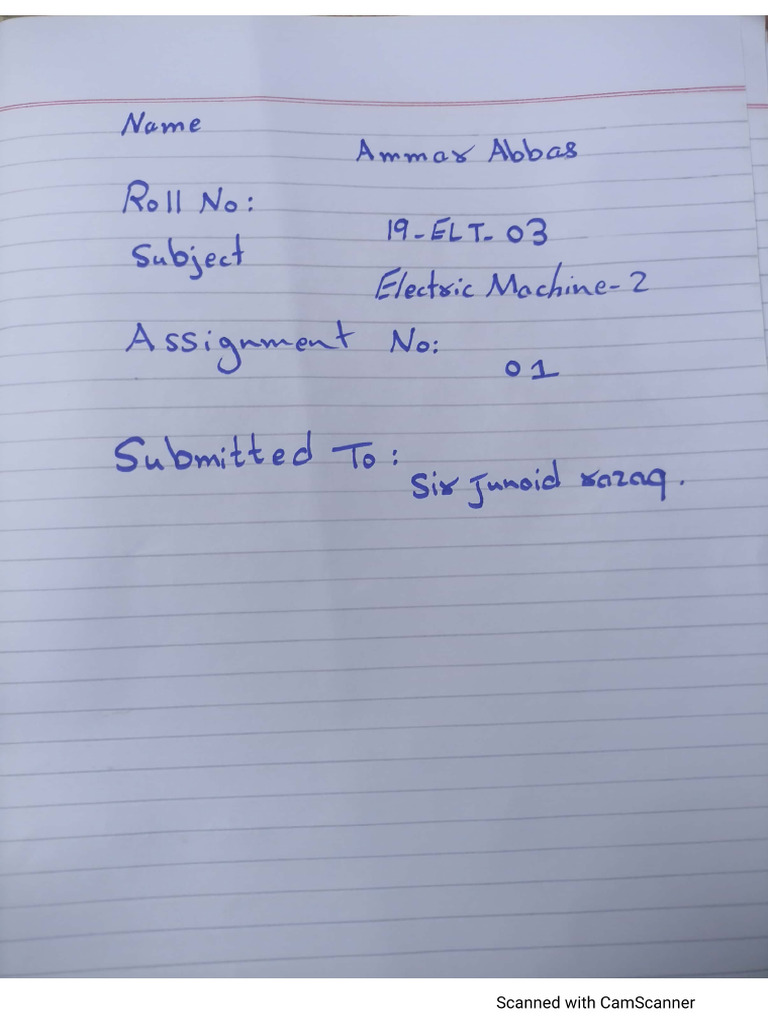 Name
Ammar Abbas
Roll No:
19-ELT-03
Subject
Electric Machine-2
Assignment No:
01
Submitted To:
Sir Junaid razaq.
Scanned with CamScanner